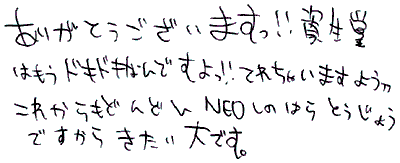 ありがとうございますっ!! 資生堂
はもうドキドキなんですよっ!! てれちゃいますようっっ
これからもどんどん NEOしのはら とうじょう
ですから きたい大です。